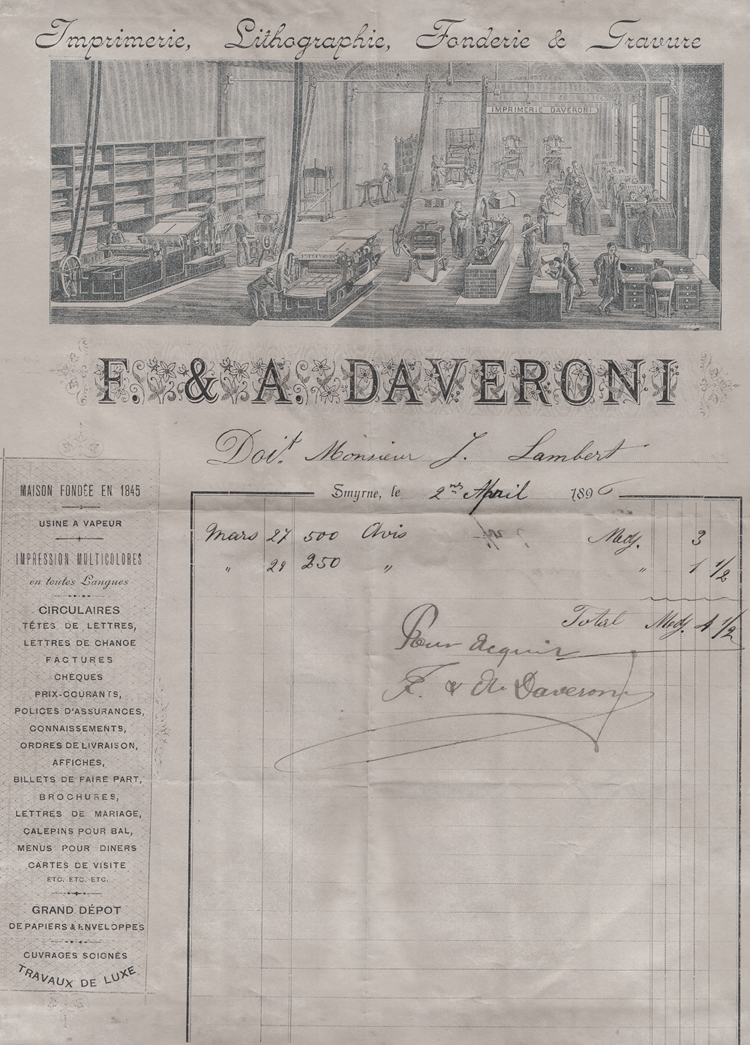 Imprimerie, Lithographie, Fonderie & Gravure
IMPRIMERIE DAVERONI
F. & A. DAVERONI
Doit Monsieur J. Lambert
Smyrne, le 2nd April 1896
MAISON FONDÉE EN 1845
USINE A VAPEUR
IMPRESSION MULTICOLORES
en toutes Langues
CIRCULAIRES
TÊTES DE LETTRES,
LETTRES DE CHANGE
FACTURES
CHEQUES
PRIX-COURANTS,
POLICES D'ASSURANCES,
CONNAISSEMENTS,
ORDRES DE LIVRAISON,
AFFICHES,
BILLETS DE FAIRE PART,
BROCHURES,
LETTRES DE MARIAGE,
CALEPINS POUR BAL,
MENUS POUR DINERS
CARTES DE VISITE
ETC. ETC. ETC.
GRAND DÉPOT
DE PAPIERS & ENVELOPPES
OUVRAGES SOIGNÉS
TRAVAUX DE LUXE
Mars 27 500 Avis Medj. 3
" 29 250 " " 1 1/2
Total Medj. 4 1/2
Pour acquit
F. & A. Daveroni